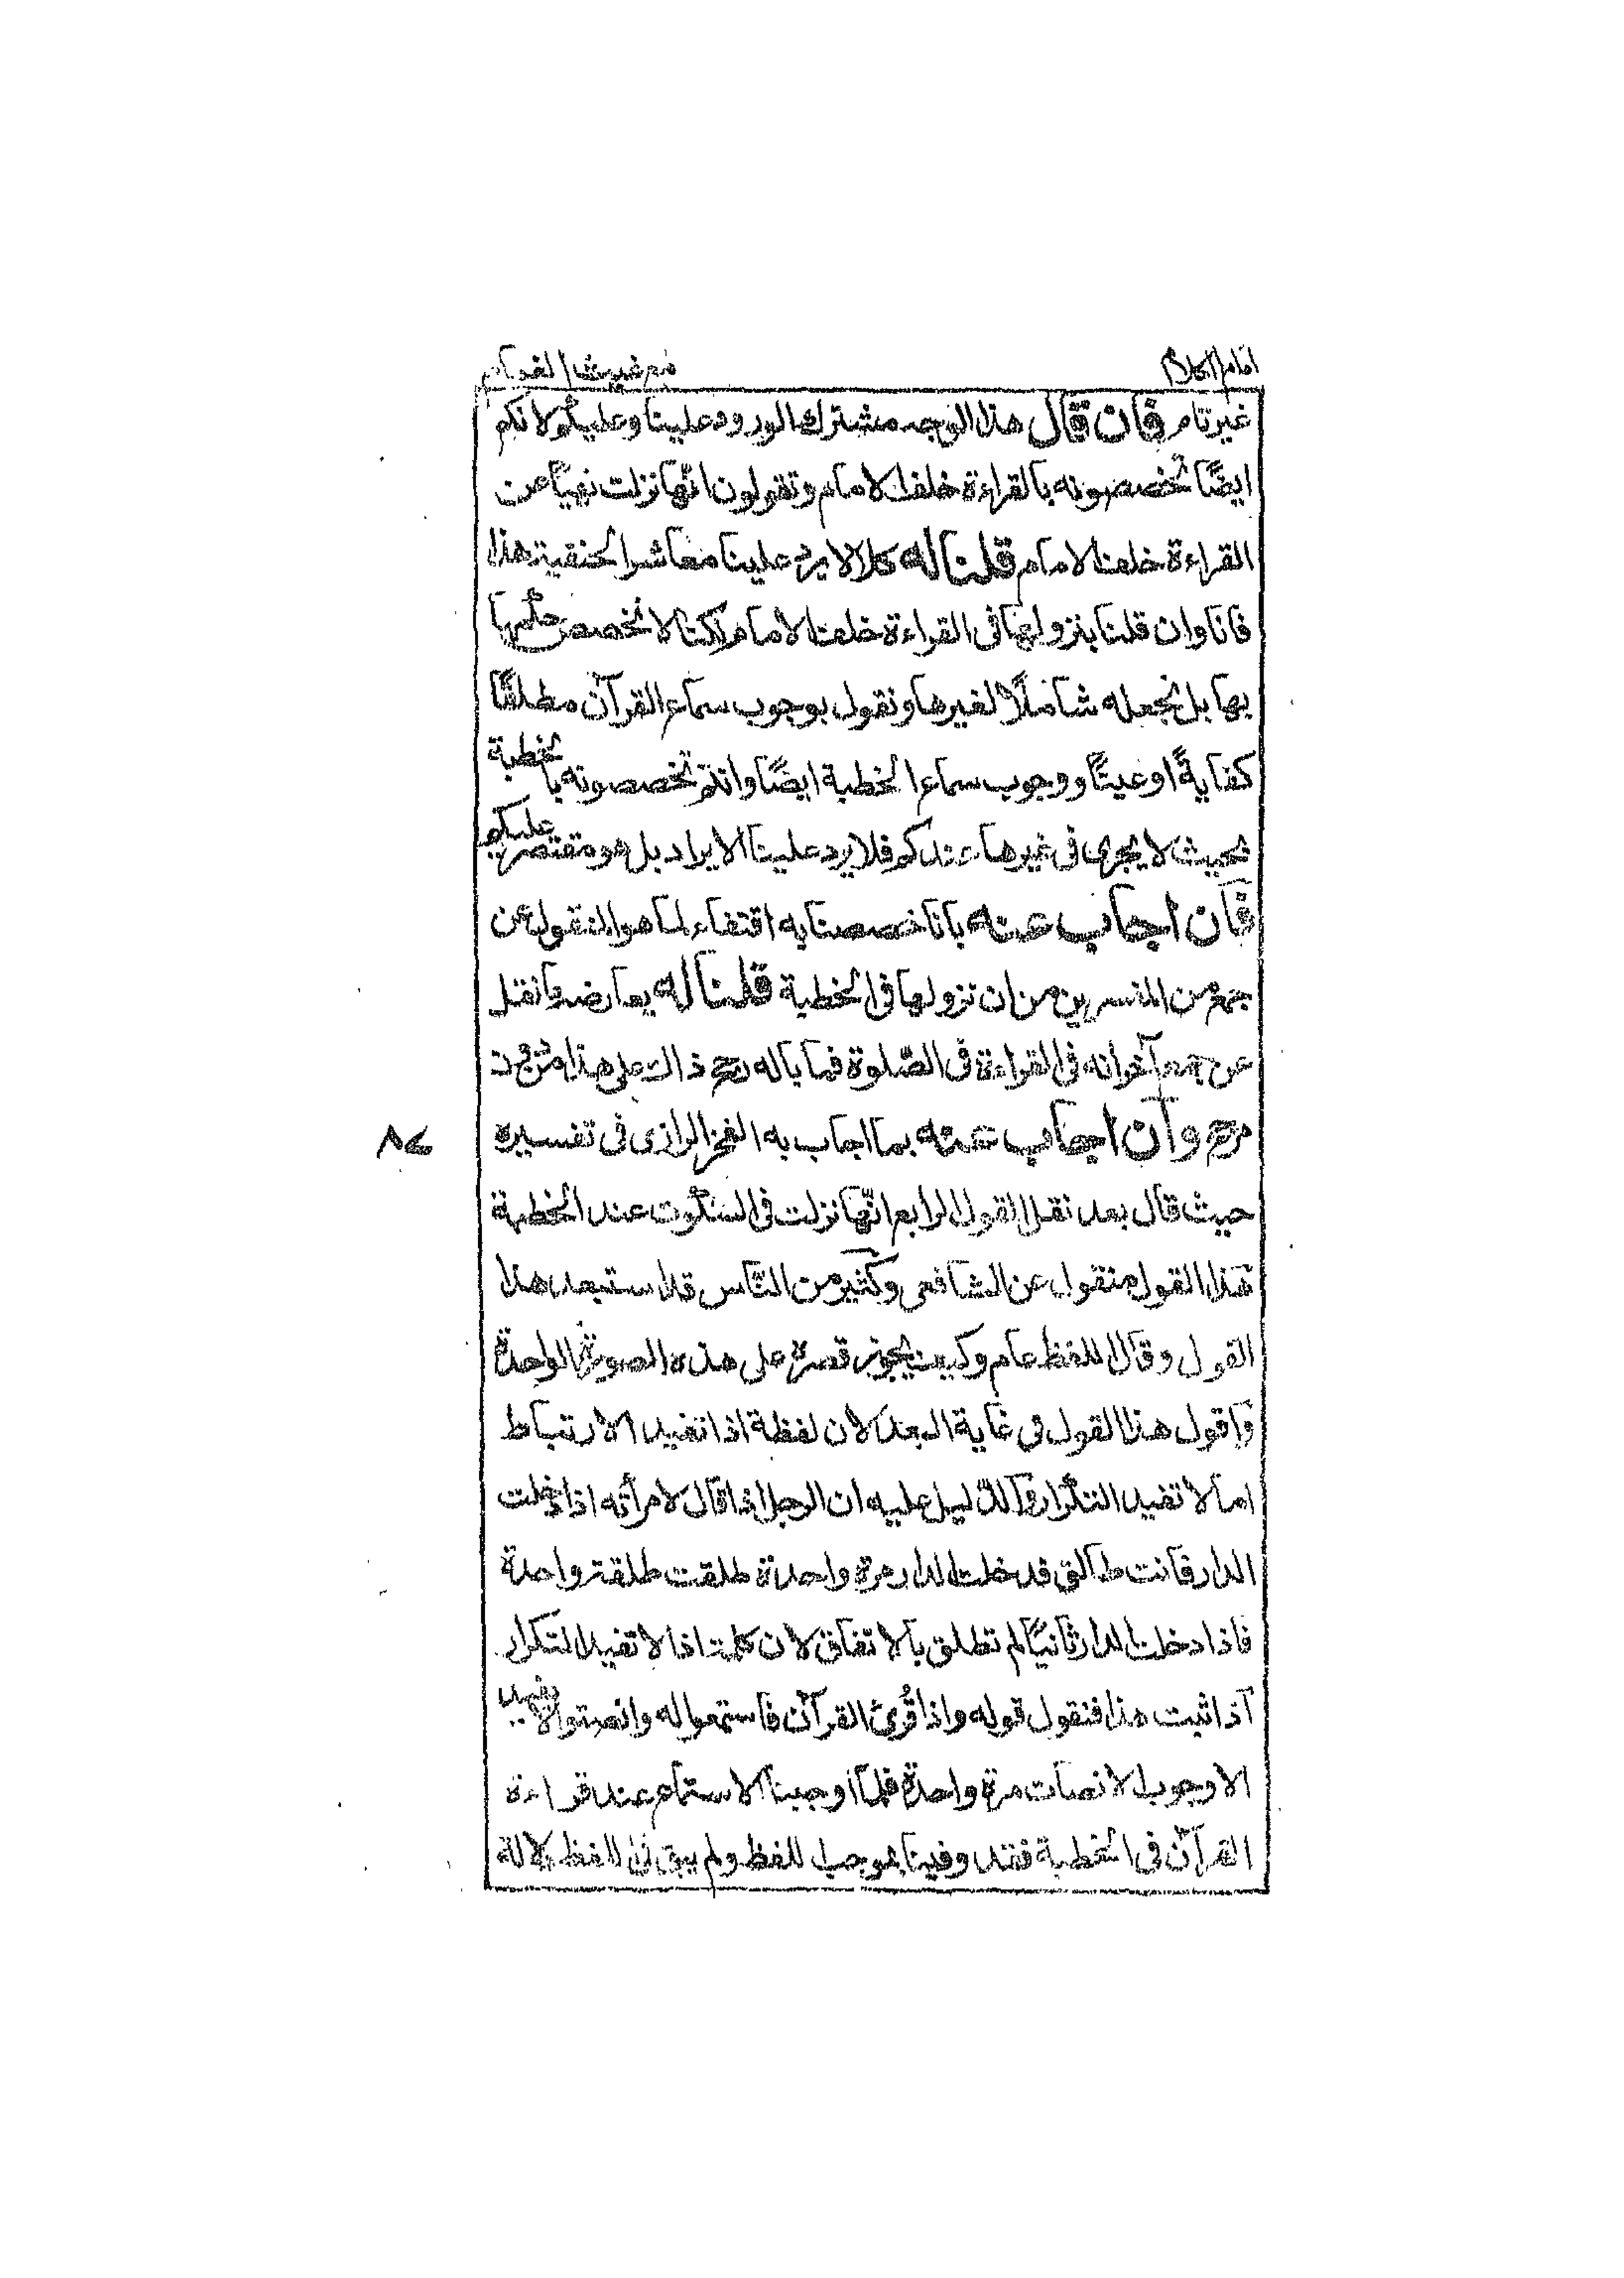 امام الكلام مع غيث الغمام
غيرتام فان قال هذا الوجه مشترك الورود علينا وعليكم لانكم
ايضًا تخصصونه بالقراءة خلف الامام وتقولون انها نزلت نهيًا عن
القراءة خلف الامام قلنا له كلا لا يرد علينا معاشر الحنفية هذا
فانا وان قلنا بنزولها فى القراءة خلف الامام لكنا لا نخصص حكمها
بها بل نجعله شاملًا لغيرها ونقول بوجوب سماع القرآن مطلقًا
كفايةً او عينًا ووجوب سماع الخطبة ايضًا وانتم تخصصونه بالخطبة
بحيث لا يجرى فى غيرها عندكم فلا يرد علينا الايراد بل هو مقتصر عليكم
فان اجاب عنه بانا خصصنا به اقتفاء لما هو المنقول عن
جمع من المفسرين من ان نزولها فى الخطبة قلنا له يعارضه ما نقل
عن جمع آخر انه فى القراءة فى الصلوة فما باله رجح ذاك على هذا من دون
مرجح وان اجاب عنه بما اجاب به الفخر الرازى فى تفسيره
٨٤
حيث قال بعد نقل القول الرابع انها نزلت فى السكوت عند الخطبة
هذا القول منقول عن الشافعى وكثير من الناس قد استبعد هذا
القول وقال اللفظ عام وكيف يجوز قصره على هذه الصورة الواحدة
واقول هذا القول فى غاية البعد لان لفظة اذا تفيد الارتباط
اما لا تفيد التكرار والدليل عليه ان الرجل اذا قال لامرأته اذا دخلت
الدار فانت طالق فدخلت الدار مرة واحدة طلقت طلقة واحدة
فاذا دخلت الدار ثانيًا لم تطلق بالاتفاق لان كلمة اذا لا تفيد التكرار
اذا ثبت هذا فنقول قوله واذا قُرئ القرآن فاستمعوا له وانصتوا لا يفيد
الا وجوب الانصات مرة واحدة فلما اوجبنا الاستماع عند قراءة
القرآن فى الخطبة فقد وفينا بموجب اللفظ ولم يبق فى اللفظ دلالة